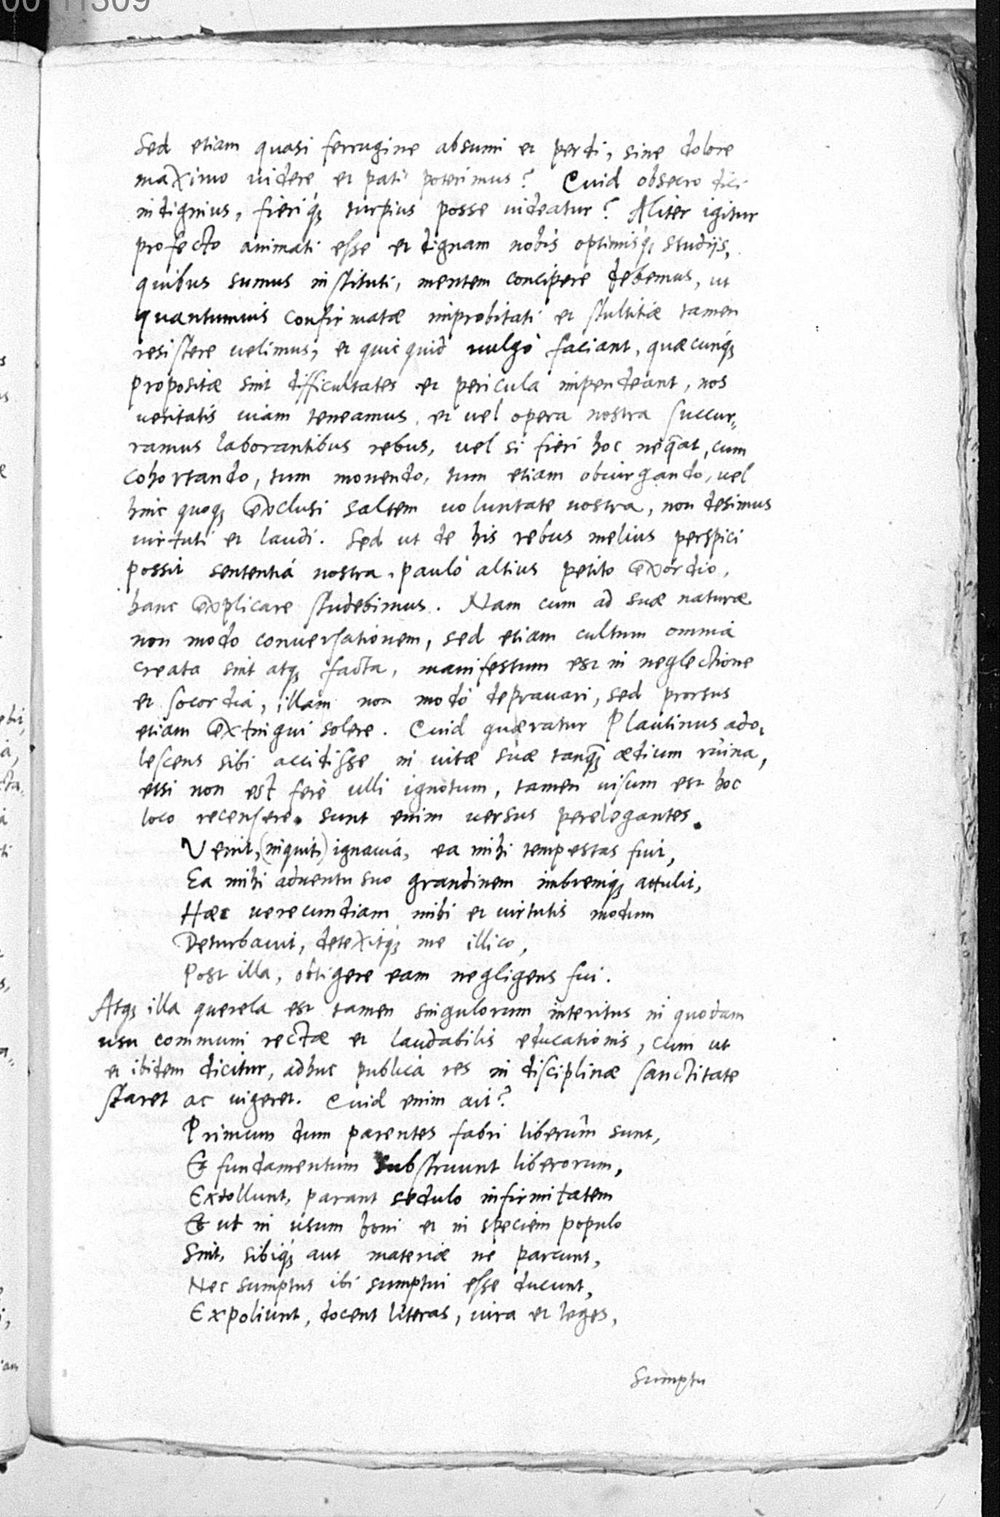 0011309
Sed etiam quasi ferrugine absumi et perdi, sine dolore
maximo videre et pati poterimus? Cuid obsecro dici
indignius, fieriq́; turpius posse uideatur? Aliter igitur
profecto animati esse et dignam nobis optimisq́; studijs,
quibus sumus instituti, mentem concipere debemus, ut
quantumuis confirmatæ improbitati et stultitiæ tamen
resistere uelimus, et quicquid uulgò faciant, quæcunq́;
propositæ sint difficultates et pericula impendeant, nos
ueritatis uiam teneamus, et uel opera nostra succur„
ramus laborantibus rebus, uel si fieri hoc neq̃at, cum
cohortando, tum monendo, tum etiam obiurgando, uel
hinc quoq; exclusi saltem uoluntate nostra, non desimus
uirtuti et laudi. Sed ut de his rebus melius perspici
possit sententiá nostra, pauló altius petito exordio,
hanc explicare studebimus. Nam cum ad suæ naturæ
non modo conuersationem, sed etiam cultum omnia
creata sint atq; facta, manifestum est in neglectione
et socordia, illam non modó deprauari, sed prorsus
etiam extingui solere. Cuid quæratur Plautinus ado„
lescens sibi accidisse in uitæ suæ tanq̃; ædium ruina,
etsi non est ferè ulli ignotum, tamen uisum est hoc
loco recensere. sunt enim uersus perelegantes.
Venit, (inquit) ignauiá, ea mihi tempestas fuit,
Ea mihi aduentu suo grandinem imbremq́; attulit,
Hæc uerecundiam mihi et uirtutis modum
Deturbauit, detexitq́; me illico,
Post illa, obtigere eam negligens fui.
Atq; illa querela est tamen singulorum interitus in quodam
usu communi rectæ et laudabilis educationis, cum ut
et ibidem dicitur, adhuc publicá res in disciplinæ sanctitate
staret ac uigeret. Cuid enim ait?
Primum dum parentes fabri liberûm sunt,
Et fundamentum substruunt liberorum,
Extollunt, parant sedulo infirmitatem
Et ut in usum boni et in speciem populo
Sint, sibiq́; aut materiæ ne parcunt,
Nec sumptus ibi sumptui esse ducunt,
Expoliunt, docent literas, iura et leges,
Sumptu